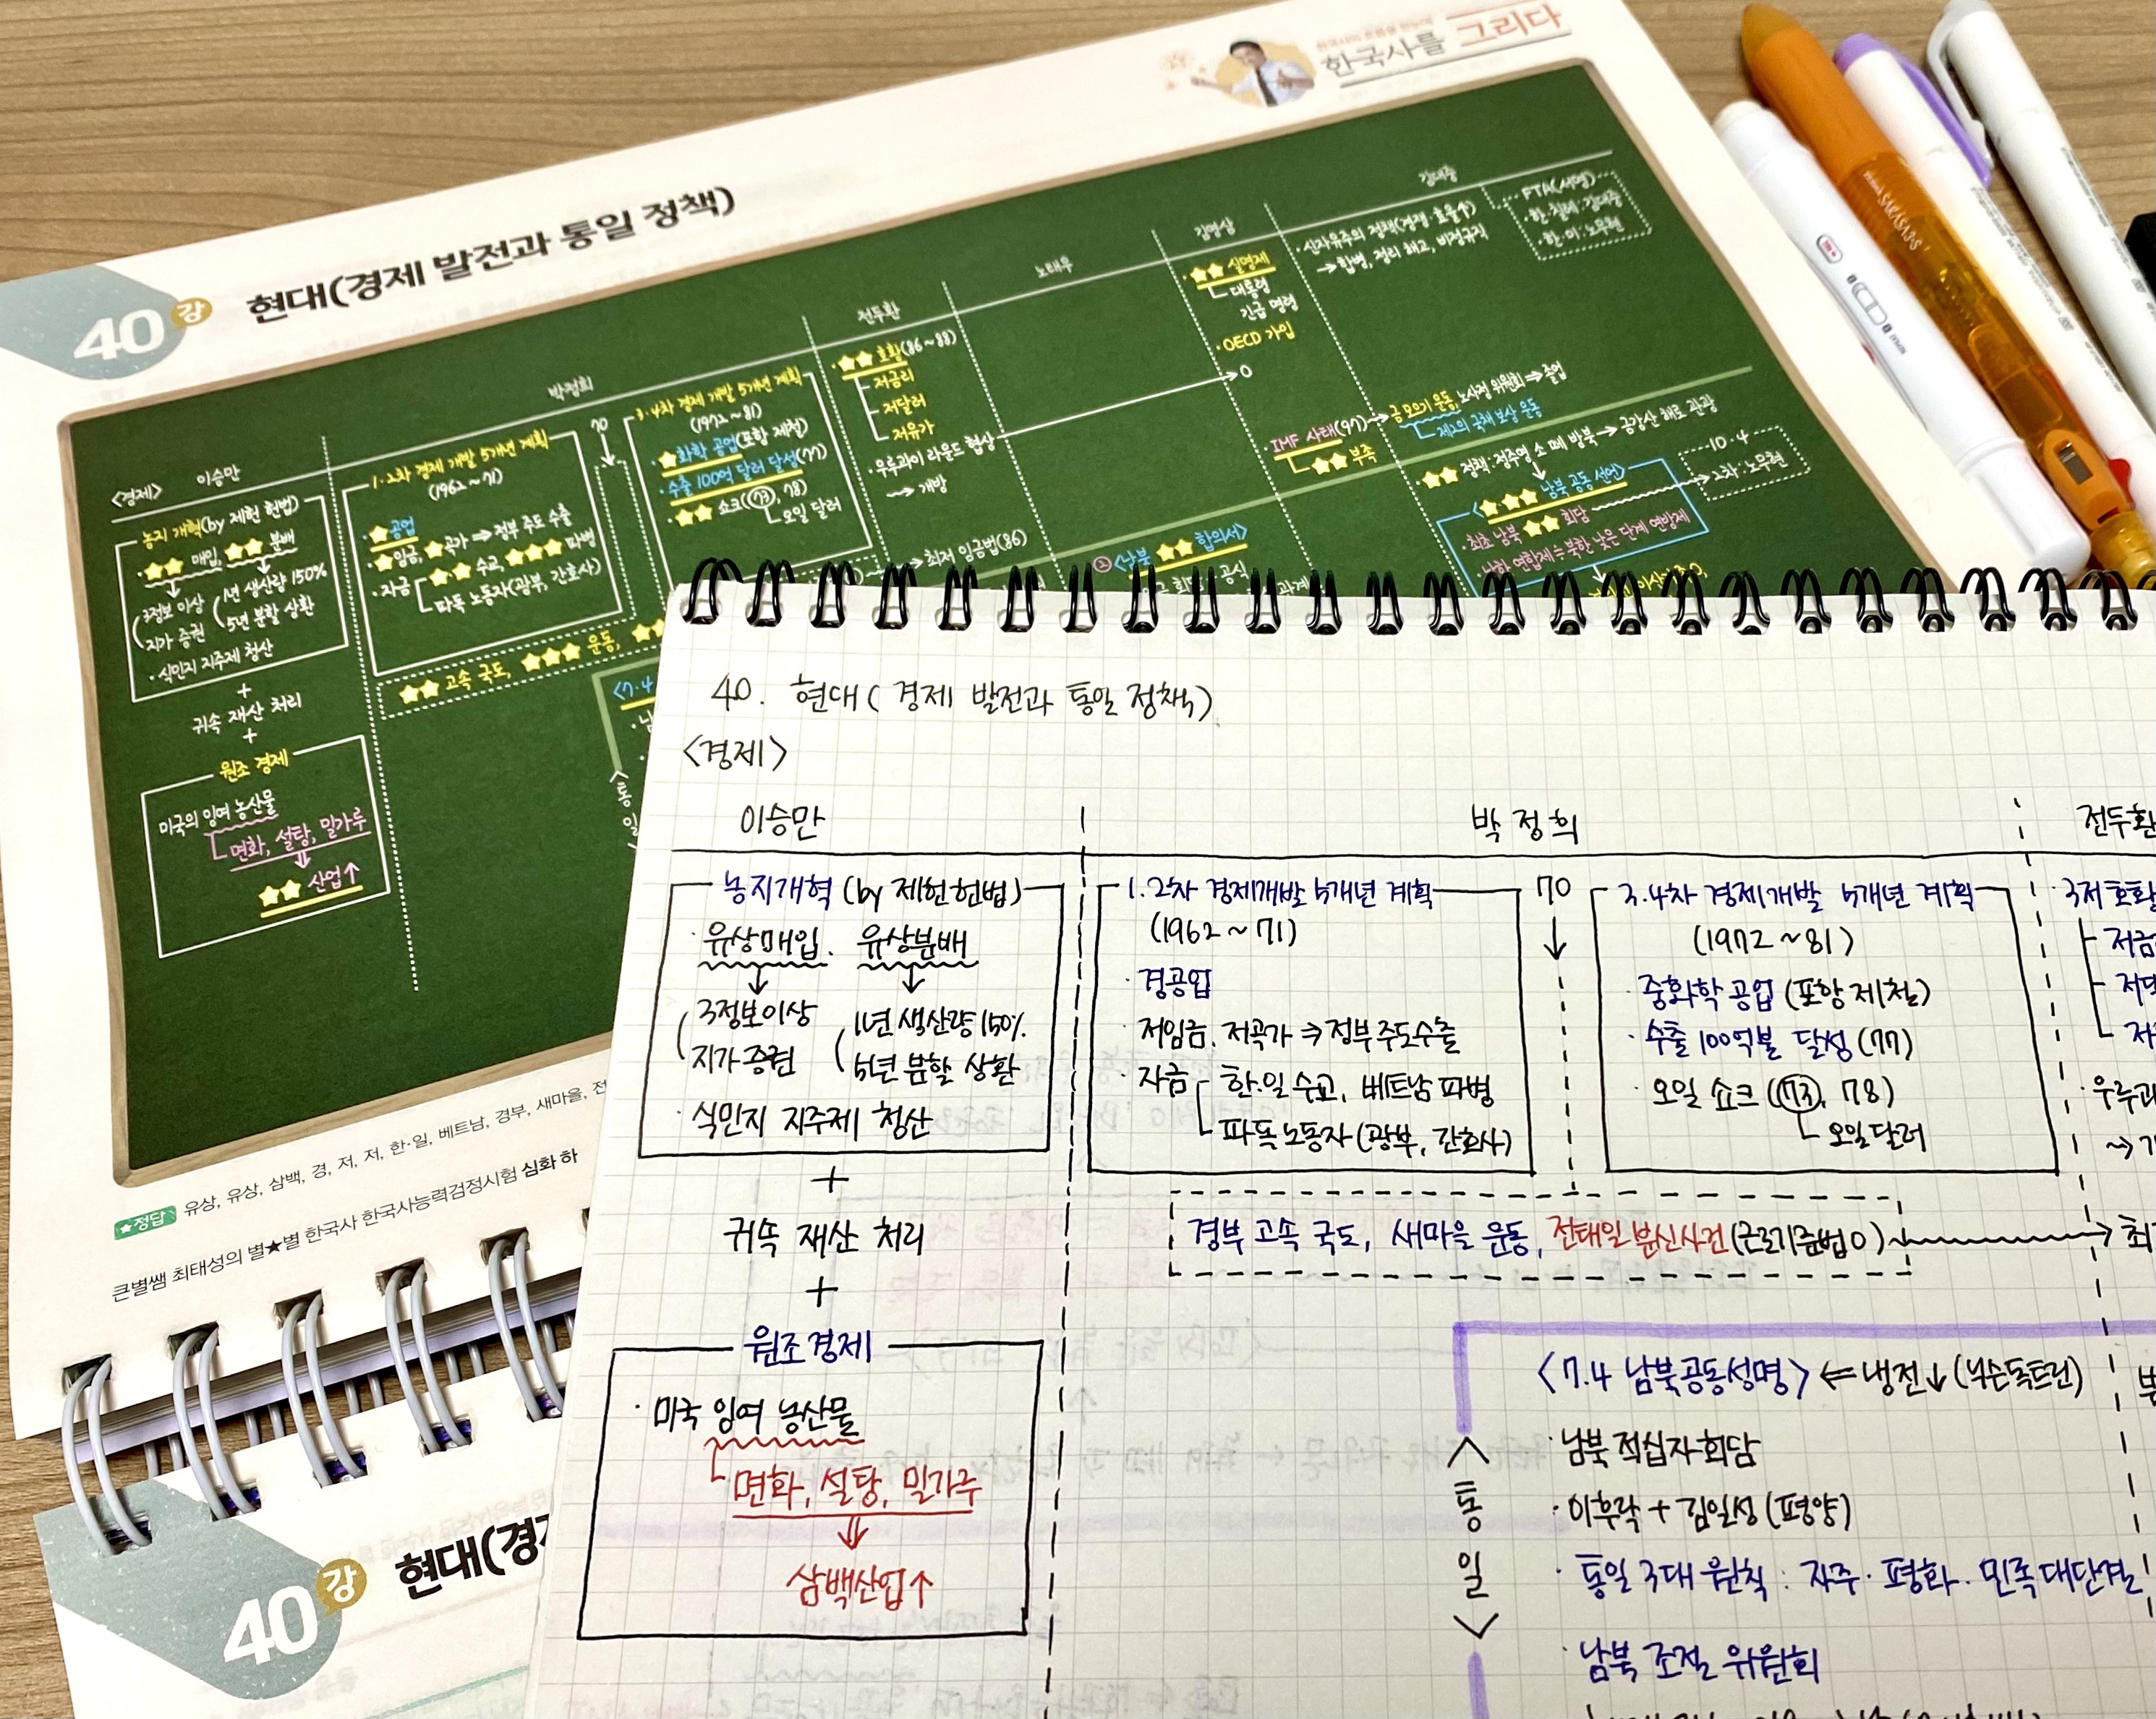 한국사를 그리다
40강 현대(경제 발전과 통일 정책)
<경제>
이승만
농지 개혁(by 제헌 헌법)
· ★★ 매입, ★★ 분배
3정보 이상
지가 증권
1년 생산량 150%
5년 분할 상환
· 식민지 지주제 청산
+
귀속 재산 처리
+
원조 경제
미국의 잉여 농산물
면화, 설탕, 밀가루
★★ 산업↑
박정희
1·2차 경제 개발 5개년 계획
(1962~71)
· ★공업
· ★임금, ★곡가 ⇒ 정부 주도 수출
· 자금 ★★ 수교, ★★★ 파병
파독 노동자(광부, 간호사)
70
↓
3·4차 경제 개발 5개년 계획
(1972~81)
· ★화학 공업(포항 제철)
· 수출 100억 달러 달성(77)
· ★★ 쇼크(73, 78)
오일 달러
★★ 고속 국도, ★★★ 운동, ★★
<7·4
전두환
· ★★ 호황(86~88)
저금리
저달러
저유가
· 우루과이 라운드 협상
→ 개방
→ 최저 임금법(86)
노태우
<남북 ★★ 합의서>
김영삼
· ★★ 실명제
대통령
긴급 명령
· OECD 가입
IMF 사태(97)
★★ 부족
김대중
· 신자유주의 정책(경쟁·효율↑)
→ 합병, 정리 해고, 비정규직
FTA(서명)
· 한·칠레: 김대중
· 한·미: 노무현
금 모으기 운동, 노사정 위원회 ⇒ 졸업
제2의 국채 보상 운동
★★ 정책: 정주영 소 떼 방북 → 금강산 해로 관광
<★★★ 남북 공동 선언>
10·4
2차: 노무현
· 최초 남북 ★★ 회담
· 남한 연합제 = 북한 낮은 단계 연방제
★정답 유상, 유상, 삼백, 경, 저, 저, 한·일, 베트남, 경부, 새마을, 전
큰별쌤 최태성의 별★별 한국사 한국사능력검정시험 심화 하
40강 현대(경
40. 현대( 경제 발전과 통일 정책)
<경제>
이승만
박정희
전두환
농지개혁 (by 제헌헌법)
· 유상매입. 유상분배
3정보이상
지가증권
1년 생산량 150%
5년 분할 상환
· 식민지 지주제 청산
+
귀속 재산 처리
+
원조경제
· 미국 잉여 농산물
면화, 설탕, 밀가루
삼백산업↑
1.2차 경제개발 5개년 계획
(1962~71)
· 경공업
· 저임금. 저곡가 ⇒ 정부주도수출
· 자금 한·일 수교, 베트남 파병
파독노동자(광부, 간호사)
70
↓
3.4차 경제개발 5개년 계획
(1972~81)
· 중화학 공업 (포항 제철)
· 수출 100억불 달성 (77)
· 오일 쇼크 (73, 78)
오일달러
경부 고속 국도, 새마을 운동, 전태일 분신사건 (근로기준법 O)
· 3저 호황
저금
저달
저
· 우루과
최
<7.4 남북공동성명> ⇐ 냉전↓ (닉슨독트린)
· 남북 적십자회담
· 이후락 + 김일성 (평양)
· 통일 3대 원칙 : 자주 · 평화 · 민족대단결
· 남북 조절 위원회
<통일>
SEYSYASYS